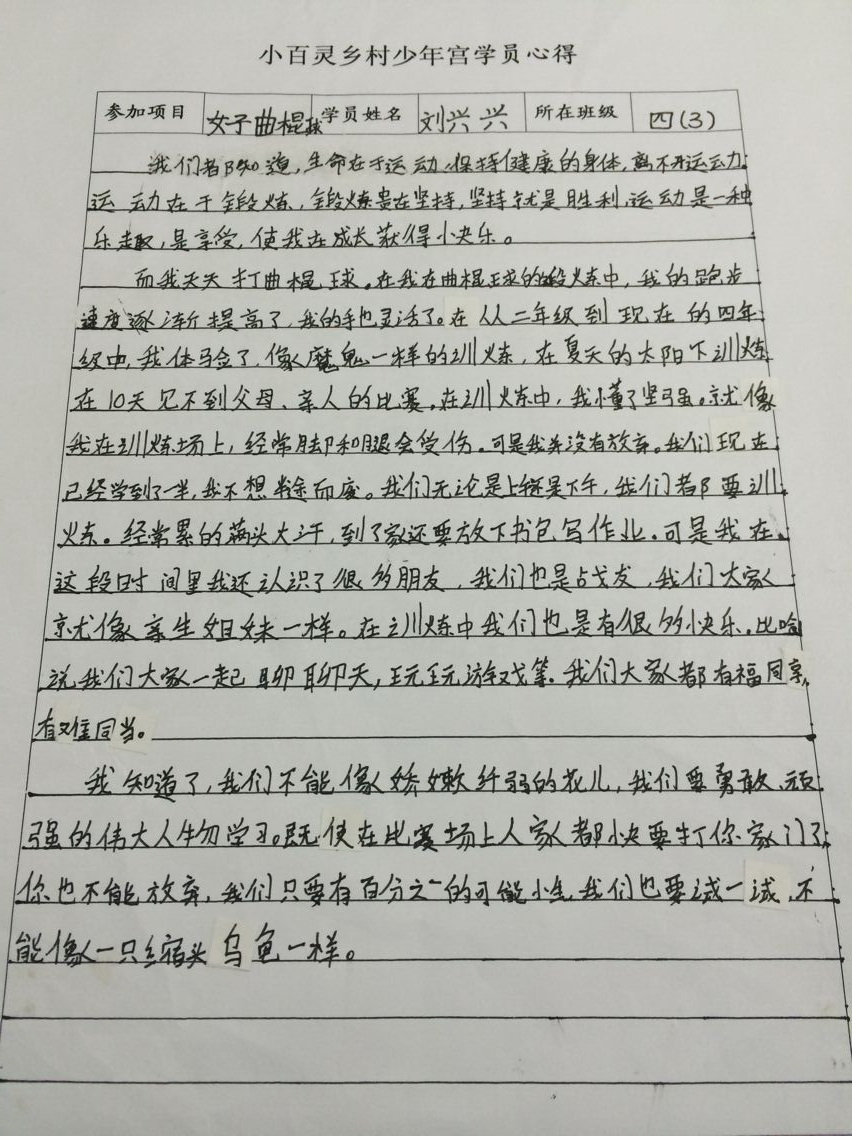 小百灵乡村少年宫学员心得
参加项目 女子曲棍球 学员姓名 刘兴兴 所在班级 四(3)
我们都知道,生命在于运动。保持健康的身体,离不开运动。
运动在于锻炼,锻炼贵在坚持,坚持就是胜利,运动是一种
乐趣,是享受,使我在成长获得小快乐。
而我天天打曲棍球。在我在曲棍球的锻炼中,我的跑步
速度逐渐提高了,我的手也灵活了。在从二年级到现在的四年
级中,我体验了,像魔鬼一样的训炼,在夏天的太阳下训炼,
在10天见不到父母、亲人的比赛。在训炼中,我懂了坚强。就像
我在训炼场上,经常脚和腿会受伤。可是我并没有放弃。我们现在
已经学到了一半,我不想半途而废。我们无论是上午还是下午,我们都要训
炼。经常累的满头大汗,到了家还要放下书包写作业。可是我在
这段时间里我还认识了很多朋友,我们也是战友,我们大家
就像亲生姐妹一样。在训炼中我们也是有很多快乐。比如
说我们大家一起聊聊天,玩玩游戏等。我们大家都有福同享,
有难同当。
我知道了,我们不能像娇嫩纤弱的花儿,我们要勇敢、顽
强的伟大人物学习。既使在比赛场上人家都快要打你家门了,
你也不能放弃,我们只要有百分之一的可能性我们也要试一试,不
能像一只缩头乌龟一样。